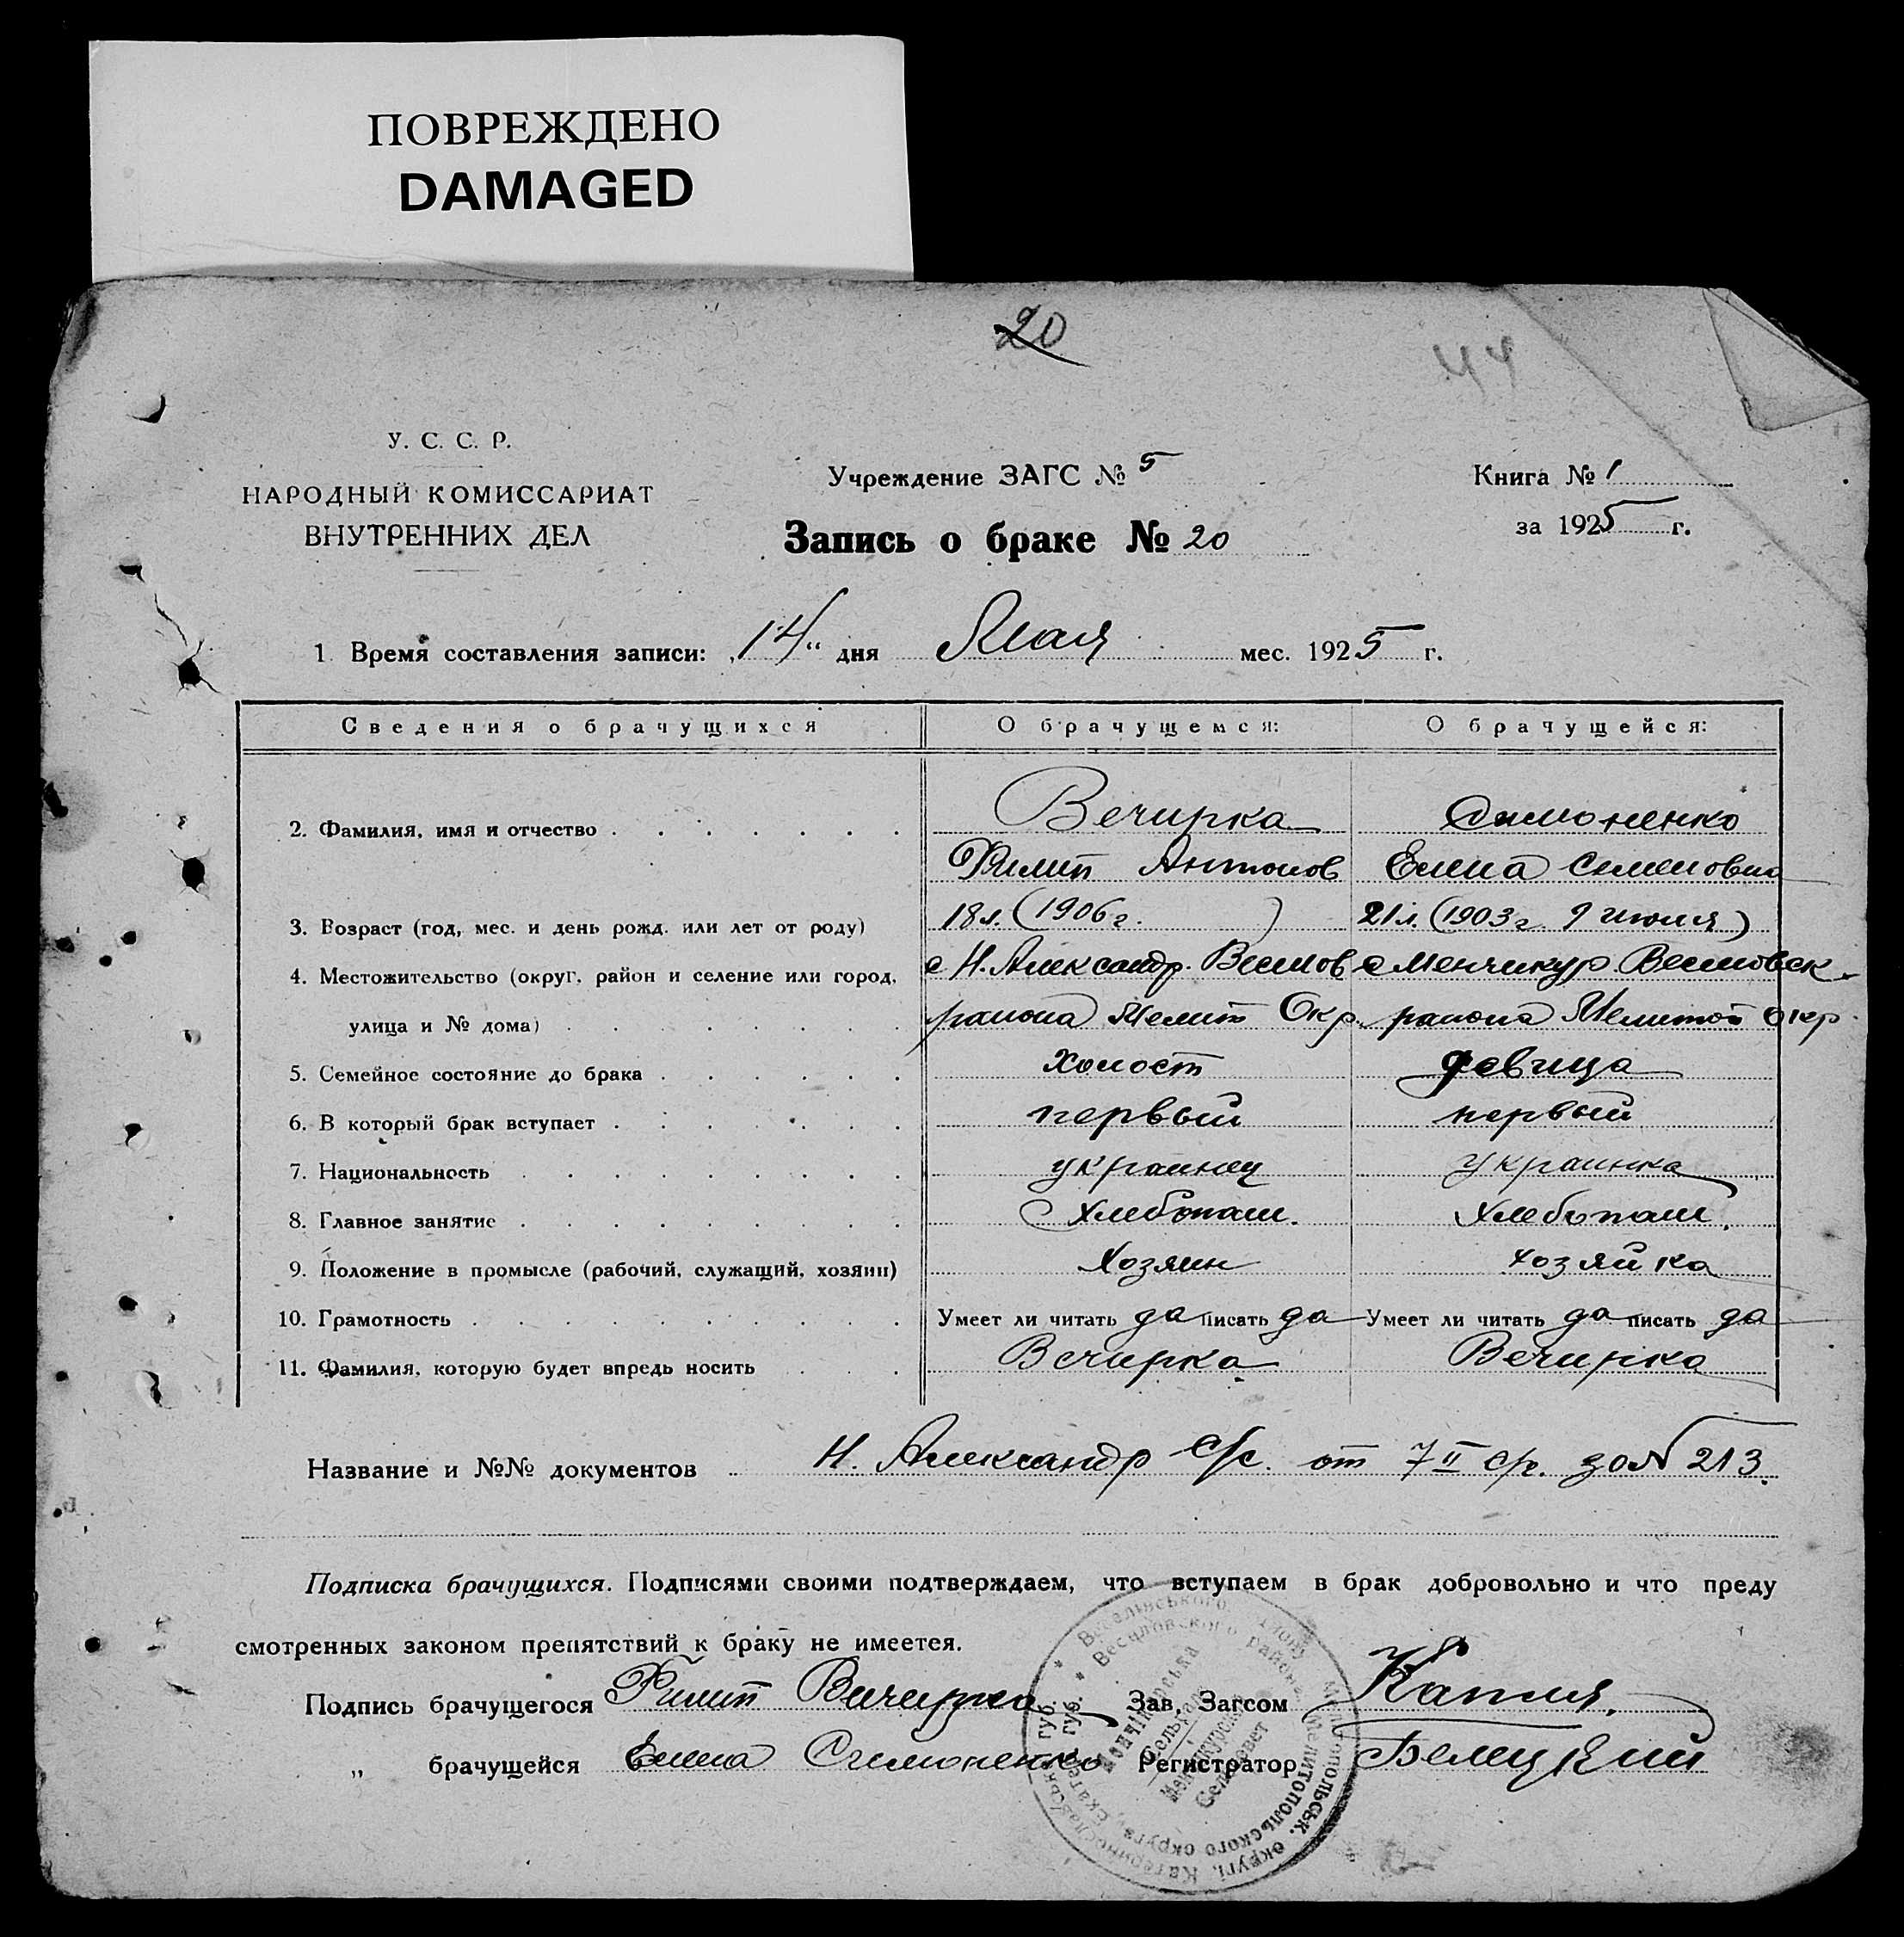 ПОВРЕЖДЕНО
DAMAGED
20
44
У. С. С. Р.
НАРОДНЫЙ КОМИССАРИАТ
ВНУТРЕННИХ ДЕЛ
Учреждение ЗАГС № 5
Запись о браке № 20
Книга № 1
за 1925 г.
1 Время составления записи: „14“ дня Мая мес. 1925 г.
Сведения о брачущихся О брачущемся: О брачущейся:
2. Фамилия, имя и отчество Вечирка Симоненко
Филип Антонов Елена Семеновна
3. Возраст (год, мес. и день рожд. или лет от роду) 18 л. (1906 г. ) 21 л. (1903 г. 9 июля)
4. Местожительство (округ, район и селение или город, с Н. Александр. Веселов с Менчикур Веселовск.
улица и № дома) района Мелит Окр. района Мелитоп Окр.
5. Семейное состояние до брака холост девица
6. В который брак вступает первый первый
7. Национальность украинец украинка
8. Главное занятие Хлебопаш. Хлебопаш.
9. Положение в промысле (рабочий, служащий, хозяин) Хозяин хозяйка
10. Грамотность Умеет ли читать да писать да Умеет ли читать да писать да
11. Фамилия, которую будет впредь носить Вечирка Вечирка
Название и №№ документов Н. Александр с/с. от 7 II с/г. за № 213.
Подписка брачущихся. Подписями своими подтверждаем, что вступаем в брак добровольно и что преду
смотренных законом препятствий к браку не имеется.
Подпись брачущегося Филип Вичирка Зав. Загсом Капля.
„ брачущейся Елена Симоненко Регистратор Белецкий
Веселовского района Мелитопольского округа